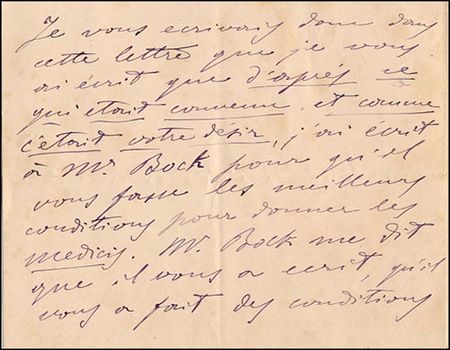 Je vous ecrivais donc dans
cette lettre que je vous
ai écrit que d'après ce
qui etait convenu et comme
c'etait votre désir, j'ai écrit
à Mr Bock pour qu'il
vous fasse les meilleurs
conditions pour donner les
Medicis. Mr. Bock me dit
que il vous a ecrit, qu'il
vous a fait des conditions